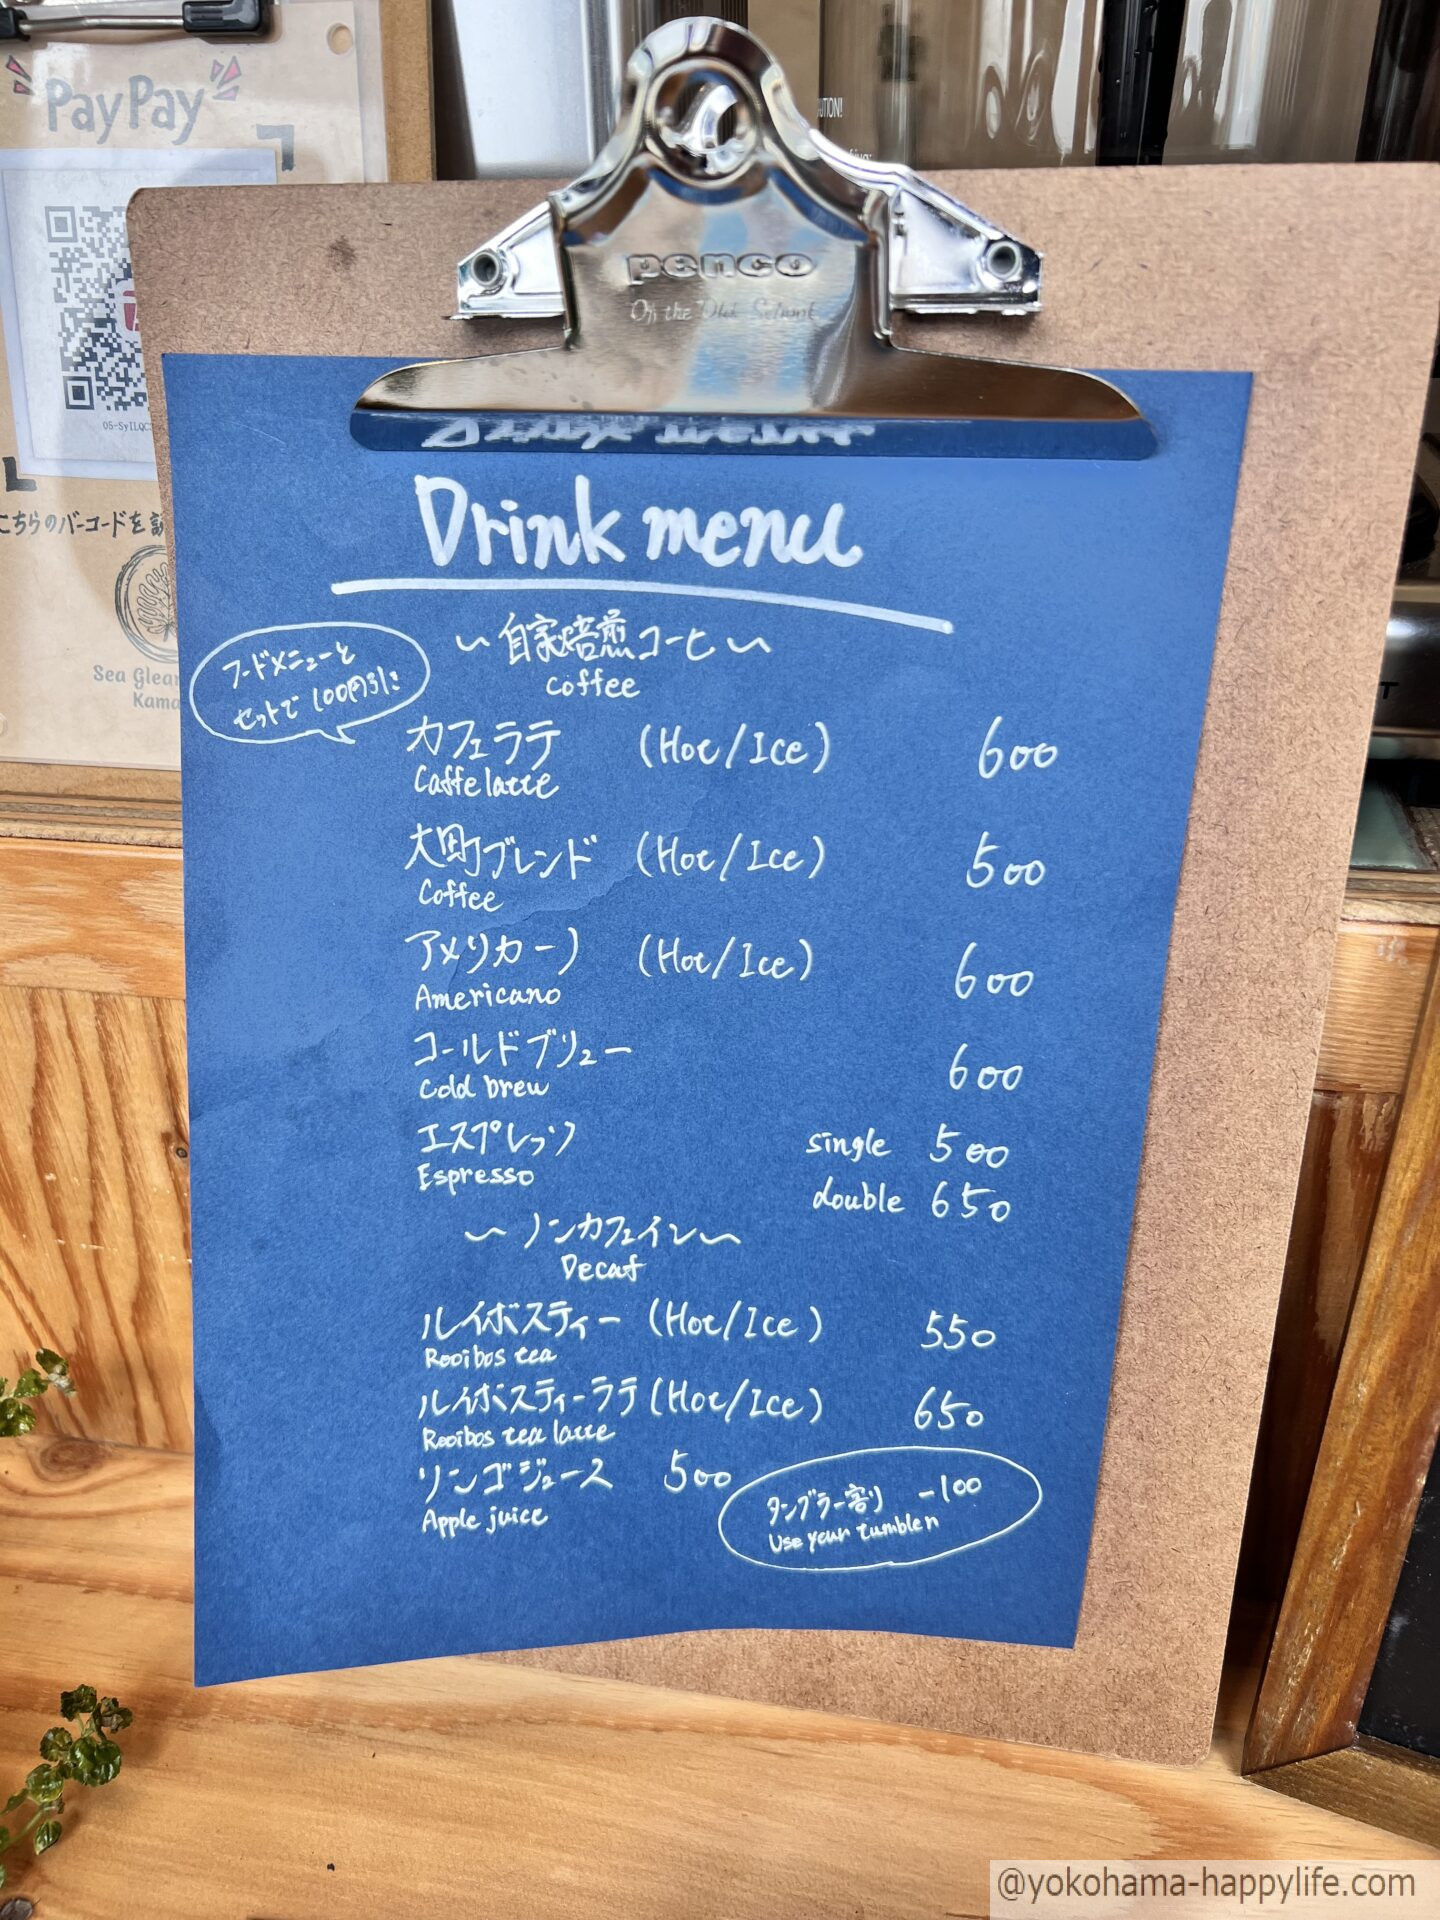 PayPay
penco
Drink menu
〜自家焙煎コーヒ〜
coffee
フードメニューと
セットで100円引に
カフェラテ (Hot/Ice) 600
Caffe latte
大町ブレンド (Hot/Ice) 500
Coffee
アメリカーノ (Hot/Ice) 600
Americano
コールドブリュー 600
Cold brew
エスプレッソ single 500
Espresso double 650
〜ノンカフェイン〜
Decaf
ルイボスティー (Hot/Ice) 550
Rooibos tea
ルイボスティーラテ (Hot/Ice) 650
Rooibos tea latte
リンゴジュース 500
Apple juice
タンブラー割り -100
Use your tumbler
こちらのバーコードを
Sea
@yokohama-happylife.com